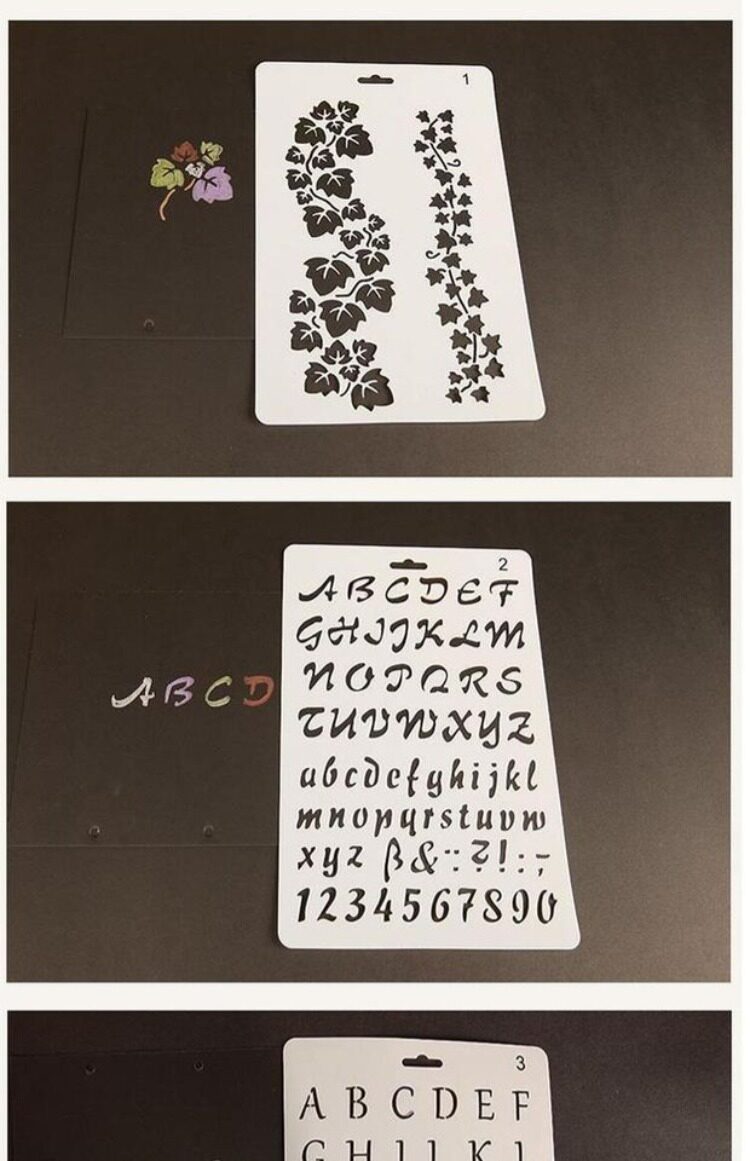 1
2
A B C D E F
G H I J K L M
N O P Q R S
T U V W X Y Z
A B C D
a b c d e f g h i j k l
m n o p q r s t u v w
x y z ß & : ? ! : ; -
1 2 3 4 5 6 7 8 9 0
3
A B C D E F
G H I J K L